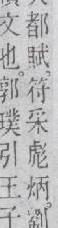 都賦。符采彪炳。劉
文也。郭璞引王子